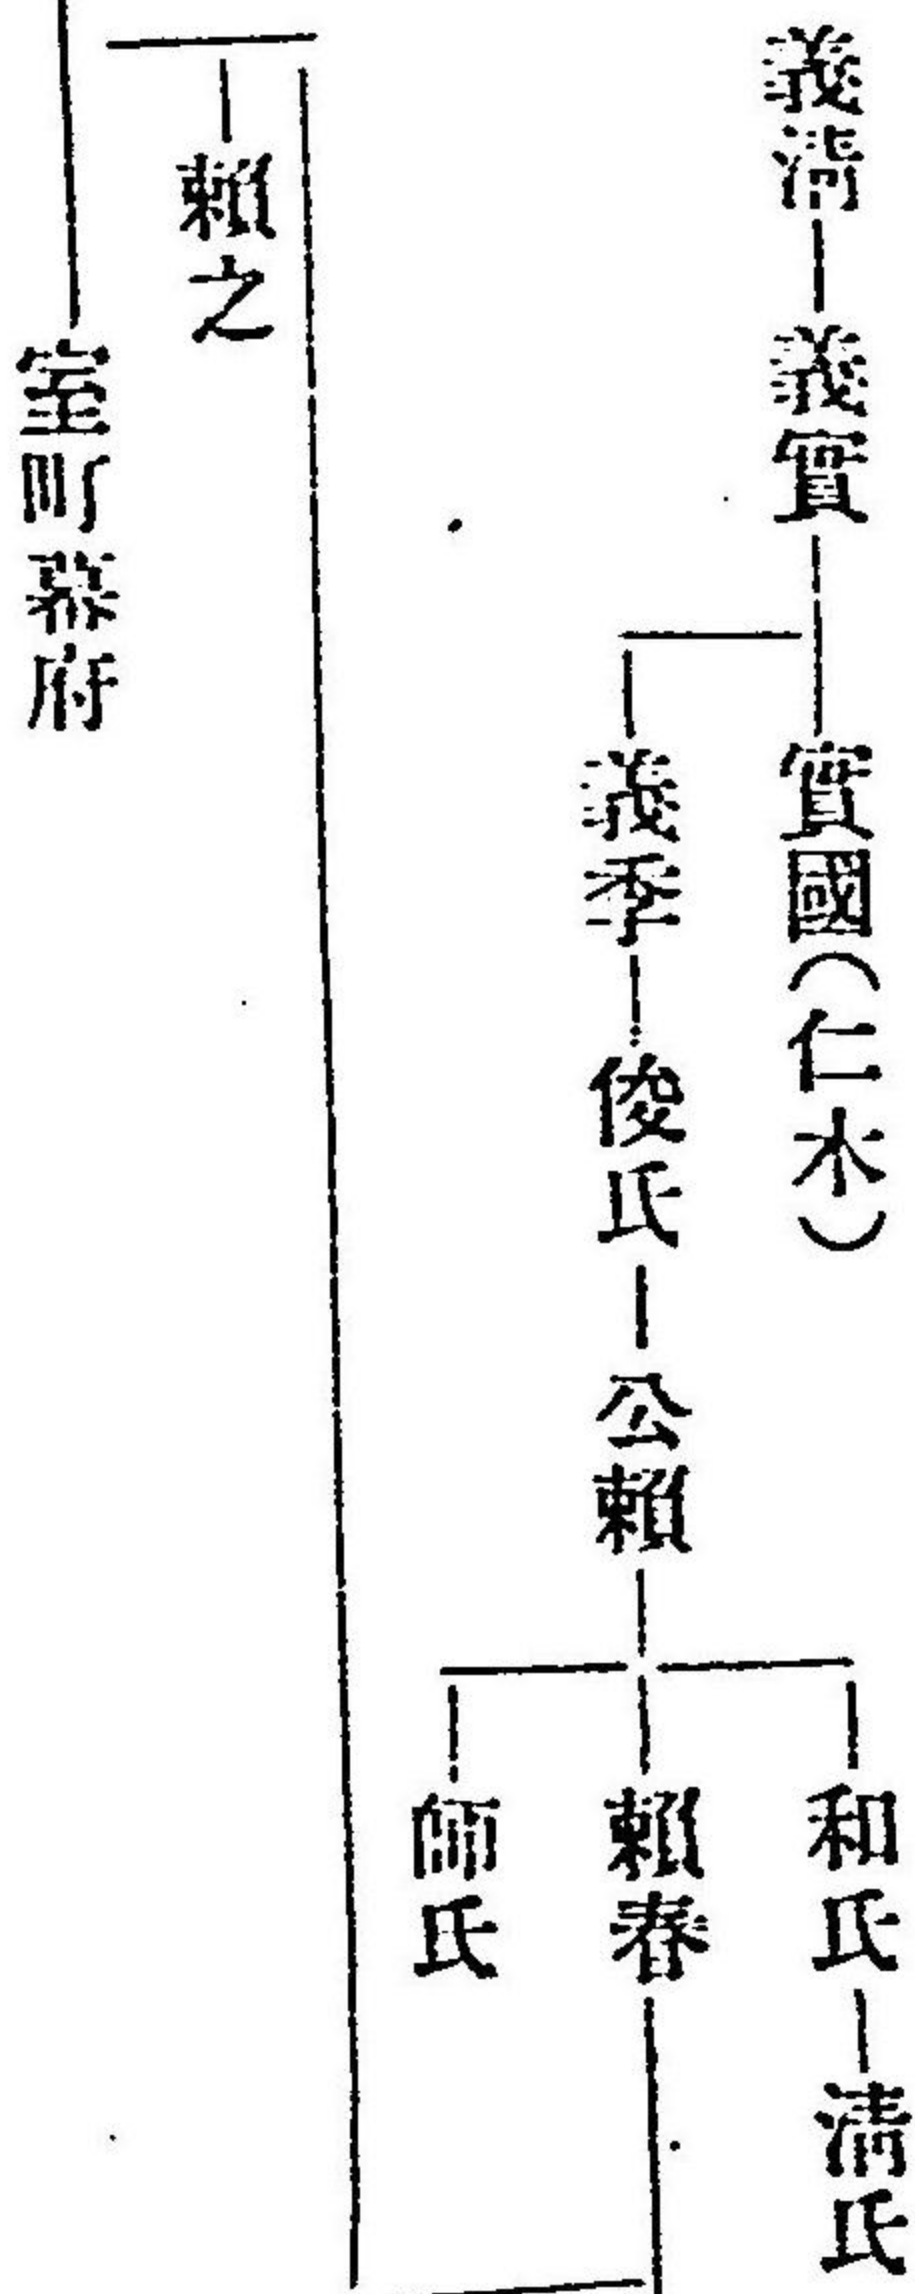 義清―義實―實國(仁木)
義季―俊氏―公賴―和氏―清氏
賴春
師氏
賴之
室町幕府